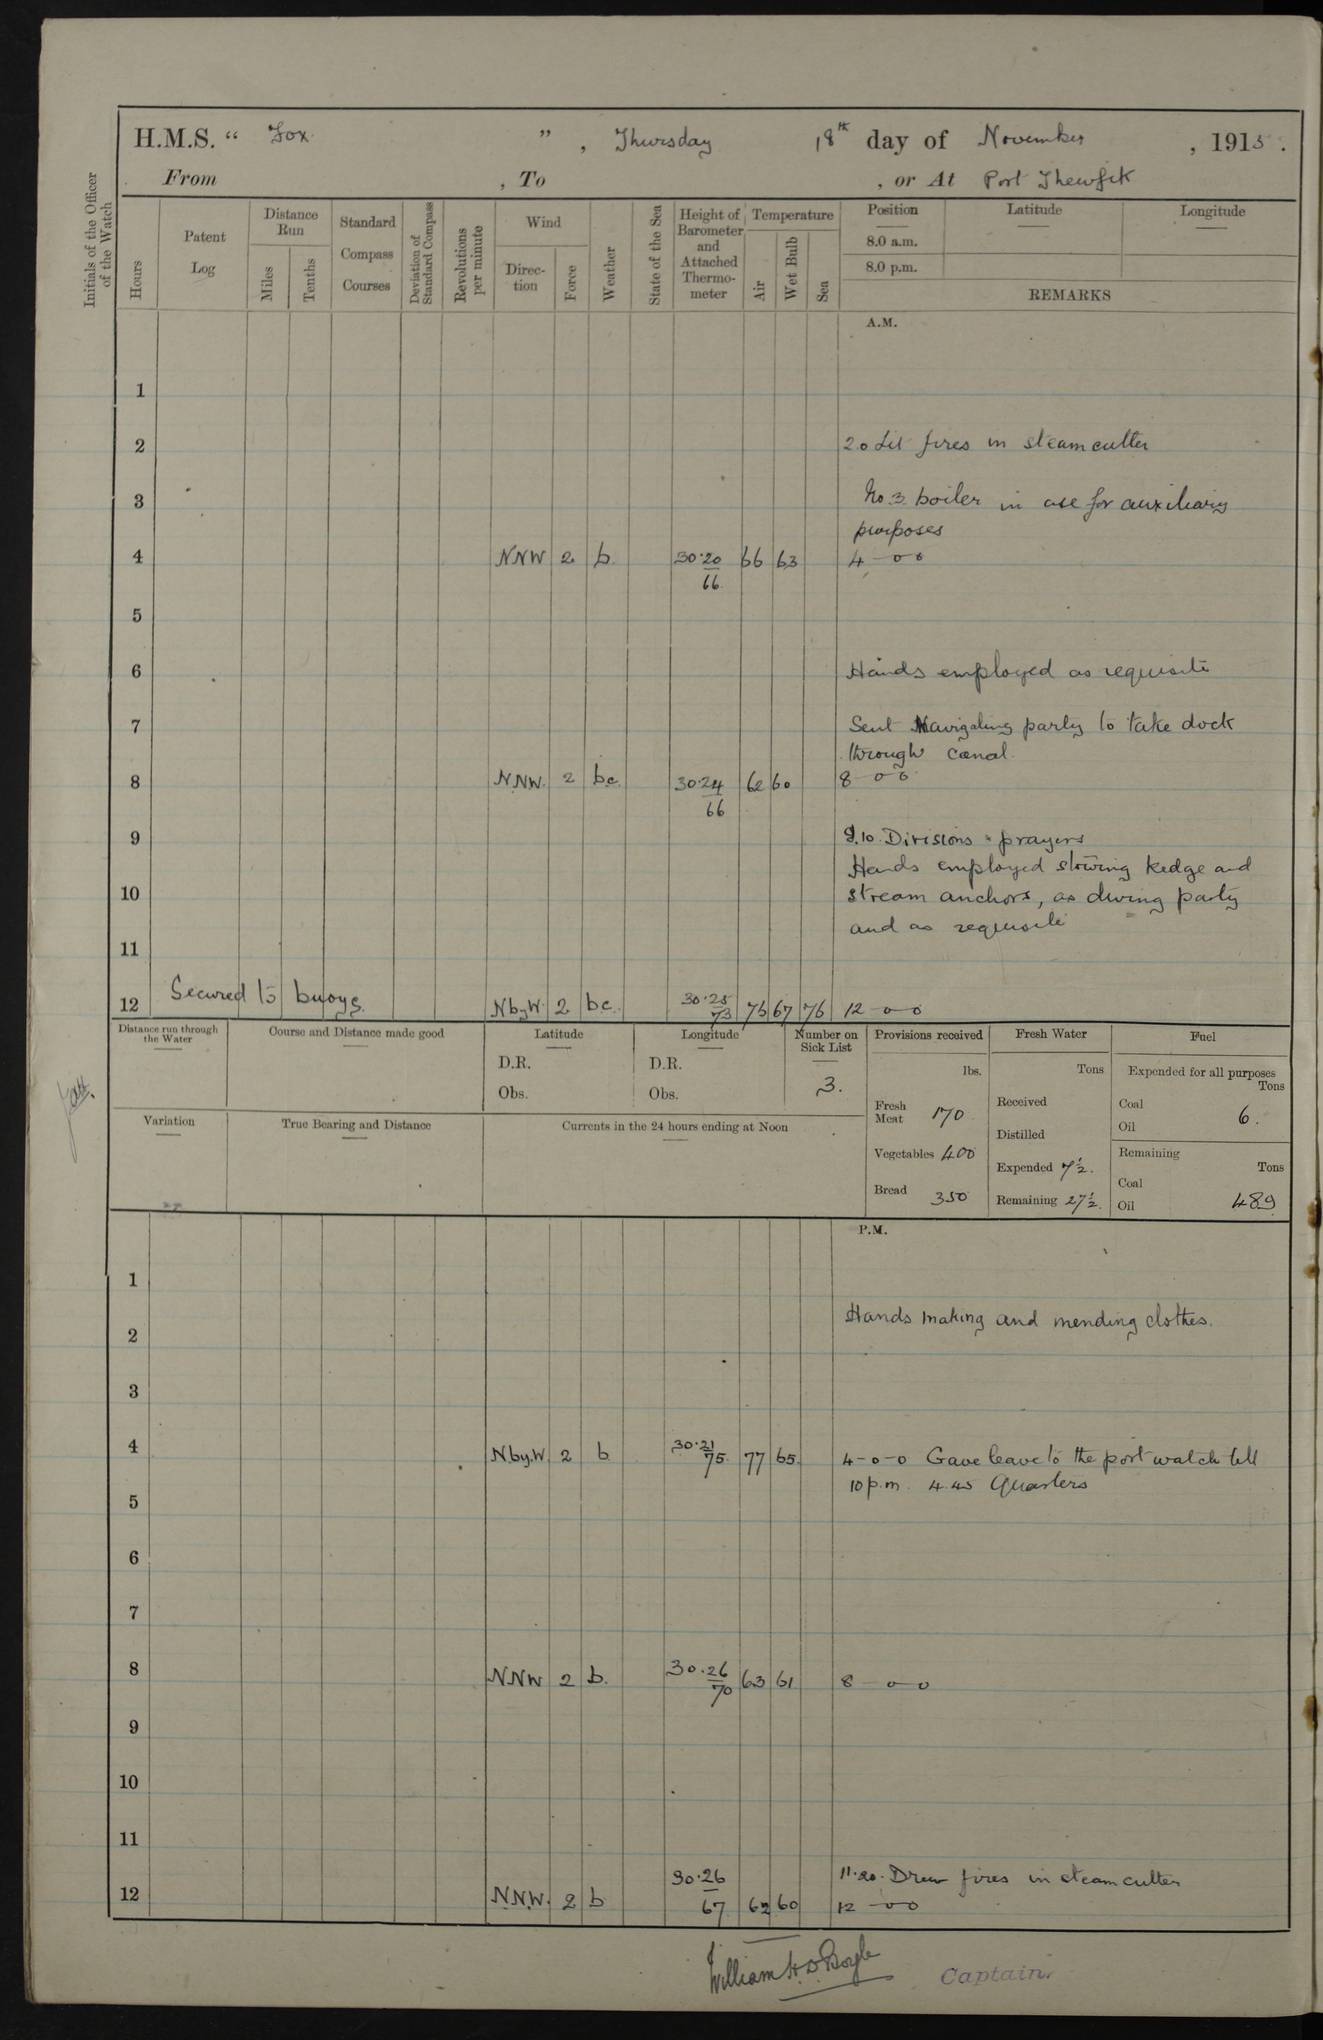 H.M.S. “ Fox ” , Thursday 18th day of November , 1915 .
From , To , or At Port Thewfik
Initials of the Officer of the Watch
Hours
Patent Log
Distance Run
Miles
Tenths
Standard Compass Courses
Deviation of Standard Compass
Revolutions per minute
Wind
Direc-tion
Force
Weather
State of the Sea
Height of Barometer and Attached Thermo-meter
Temperature
Air
Wet Bulb
Sea
Position
8.0 a.m.
8.0 p.m.
Latitude
Longitude
REMARKS
A.M.
1
2 2.0 Lit fires in steam cutter
3 No 3. boiler in use for auxiliary
purposes
4 NNW 2 b. 30.20 66 66 63 4 - o o
5
6 Hands employed as requisite
7 Sent Navigating party to take dock
through canal.
8 N.N.W. 2 bc. 30.24 66 62 60 8 - o o
9 9.10. Divisions & prayers
Hands employed stowing kedge and
10 stream anchors, as diving party
and as requisite
11
12 Secured to buoys. N by W. 2 bc. 30.25 73 75 67 76 12 - o o
Distance run through the Water
Course and Distance made good
Latitude
D.R.
Obs.
Longitude
D.R.
Obs.
Number on Sick List
3.
Provisions received
lbs.
Fresh Meat 170
Vegetables 400
Bread 350
Fresh Water
Tons
Received
Distilled
Expended 7½.
Remaining 27½.
Fuel
Expended for all purposes
Tons
Coal
Oil 6.
Remaining
Tons
Coal
Oil 489
Variation
True Bearing and Distance
Currents in the 24 hours ending at Noon
P.M.
1
Hands making and mending clothes.
2
3
4 N by. W 2 b 30.21 75. 77 65. 4 - o - o Gave leave to the port watch till
10 p.m. 4.45 Quarters
5
6
7
8 NNW 2 b. 30.26 70 63 61 8 - o o
9
10
11
11.20. Drew fires in steam cutter
12 N.N.W. 2 b 30.26 67 62 60 12 - o o
William H. D. Boyle
Captain.